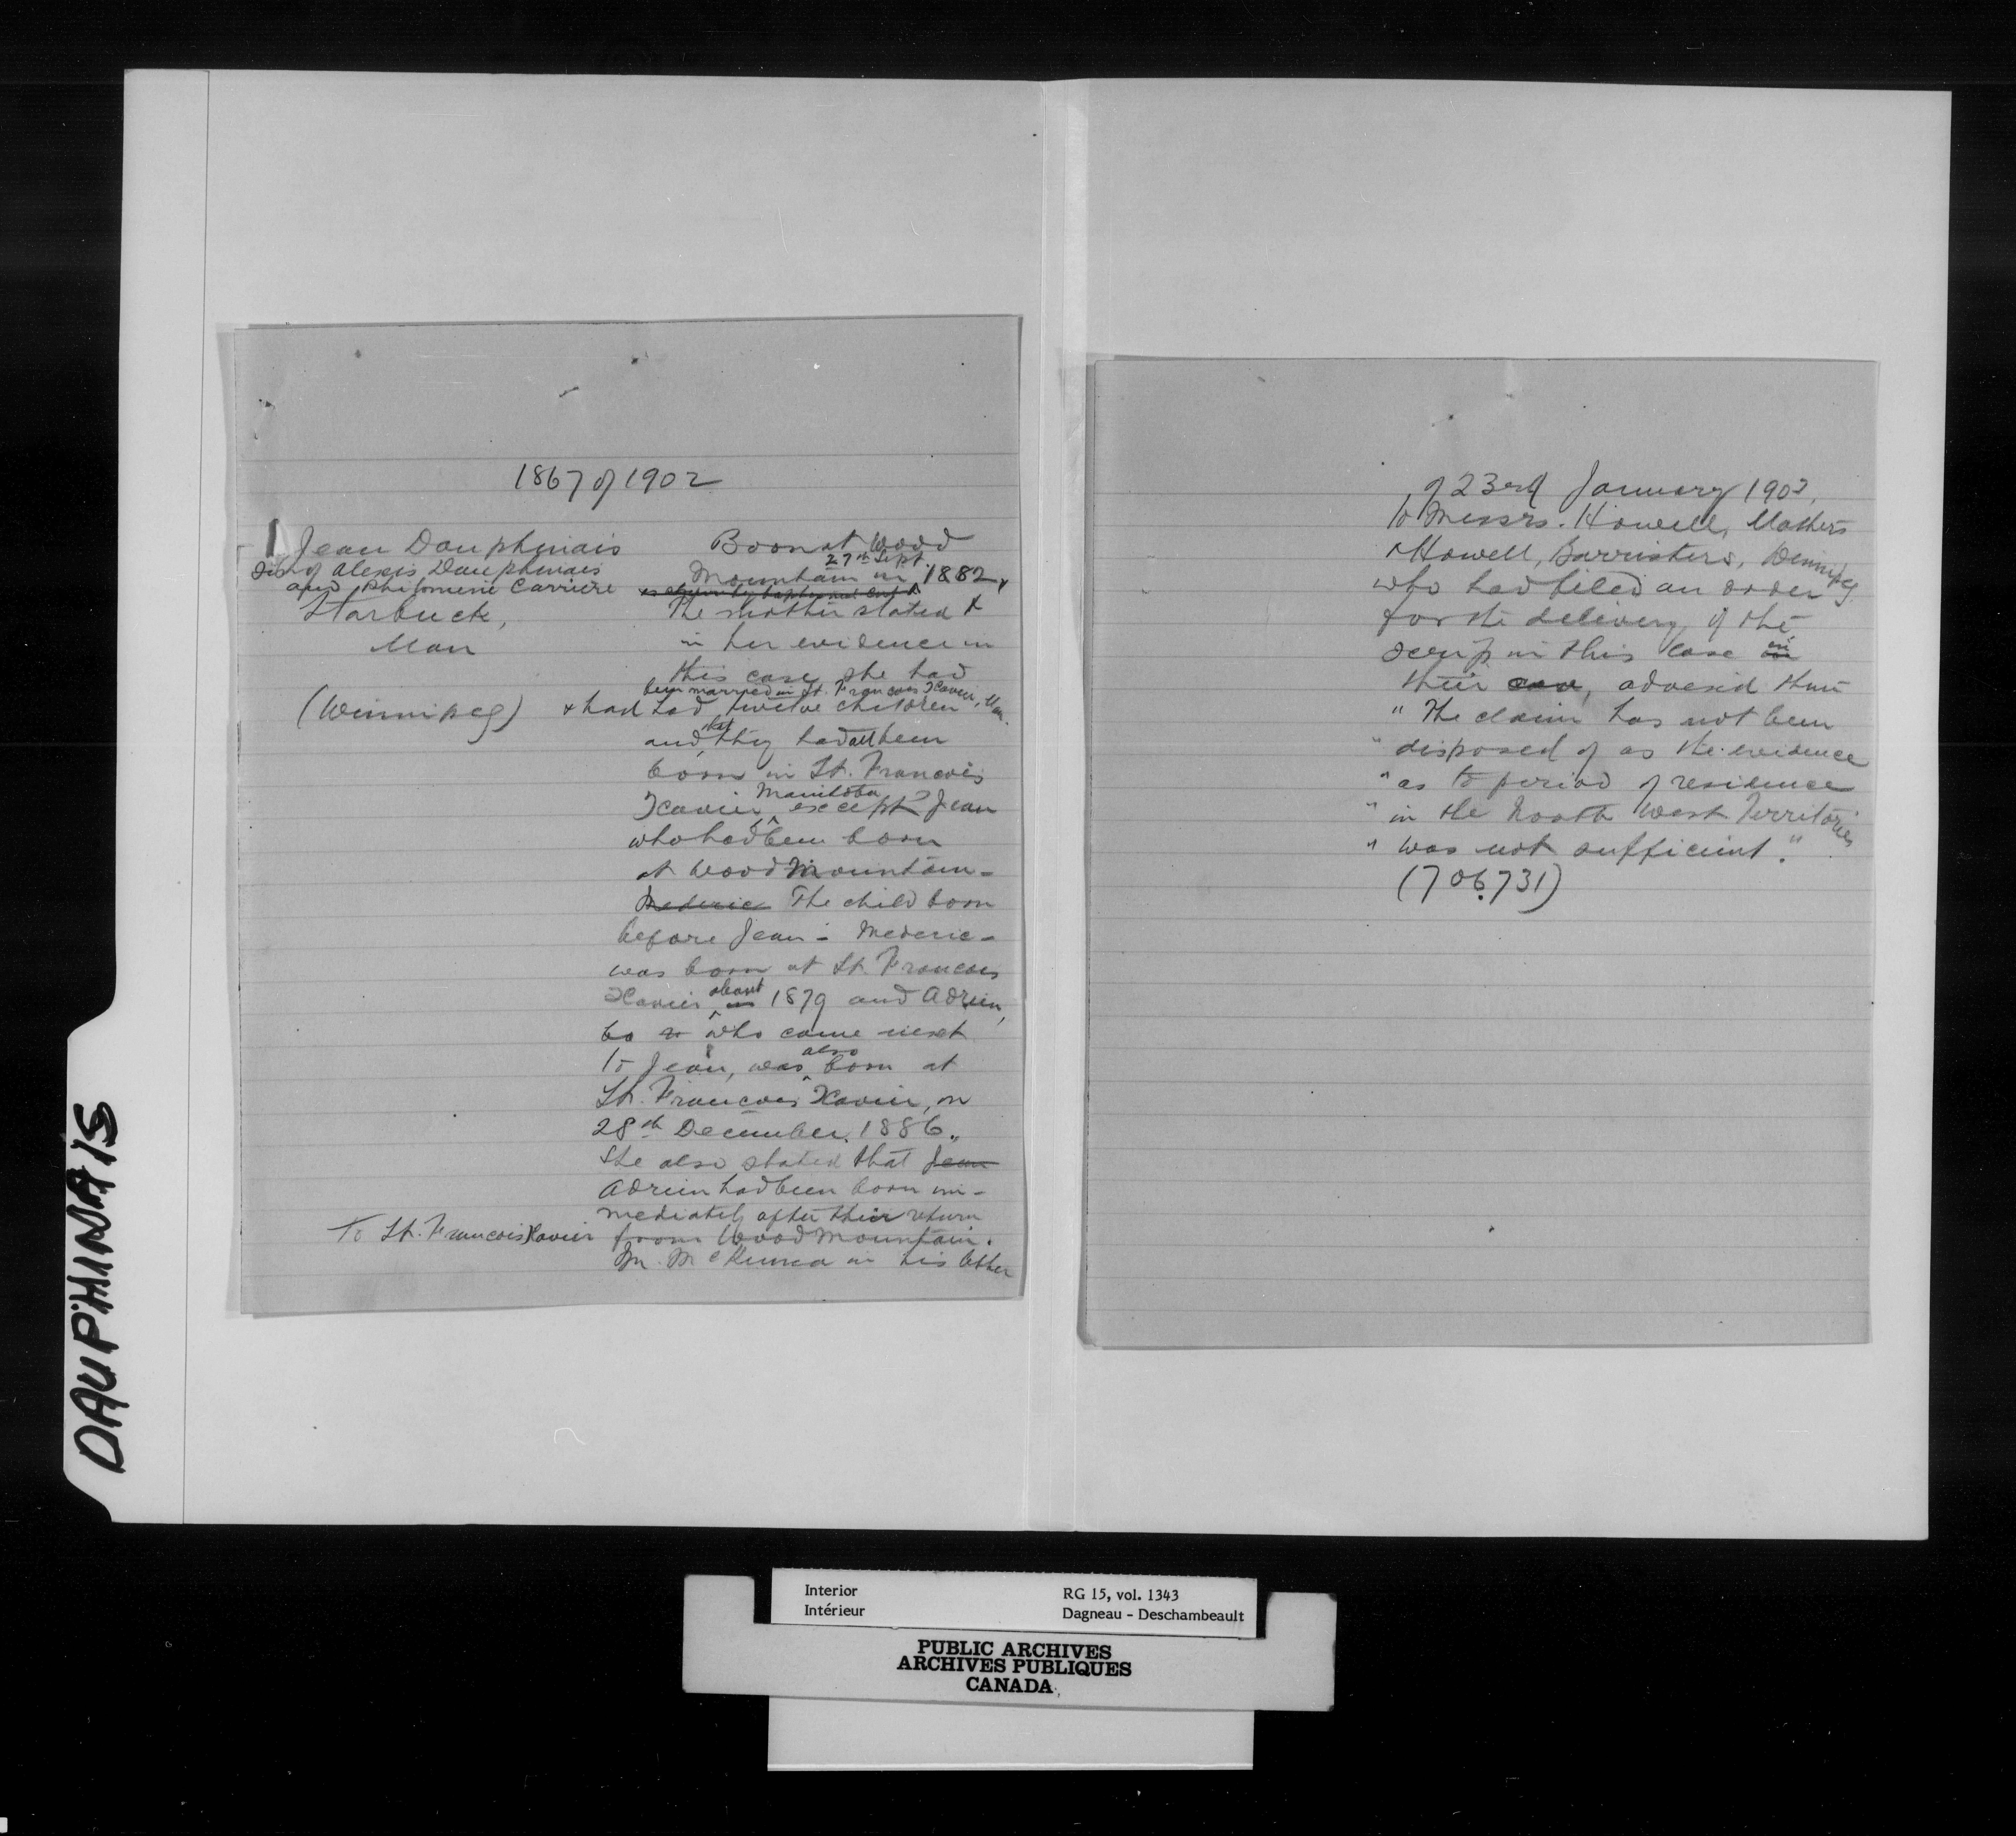 DAUPHINAIS
1867 of 1902
1 Jean Dauphinais
son of Alexis Dauphinais
and Philomene Carriere
Starbuck,
Man
(Winnipeg)
Born at Wood
27th Sept.
Mountain in 1882,
The Mother stated
in her evidence in
this case she had
been married in St. Francois Xavier, Man.
& had had twelve children
and that they had all been
born in St. Francois
Xavier Manitoba except Jean
who had been born
at Wood Mountain -
Mederic The child born
before Jean - Mederic -
was born at St. Francois
Xavier about in 1879 and Adrien,
who came next
to Jean, was also born at
St. Francois Xavier, on
28th December, 1886.
She also stated that Jean
Adrien had been born im-
mediately after their return
To St. Francois Xavier from Wood Mountain.
Mr. McKenna in his letter
of 23rd January 1903,
to Messrs. Howell, Mathers
& Howell, Barristers, Winnipeg
who had filed an order
for the delivery of the
scrip in this case in
their, advised them
" The claim has not been
" disposed of as the evidence
" as to period of residence
" in the North West Territories
" was not sufficient."
(706.731)
Interior
Intérieur
RG 15, vol. 1343
Dagneau - Deschambeault
PUBLIC ARCHIVES
ARCHIVES PUBLIQUES
CANADA